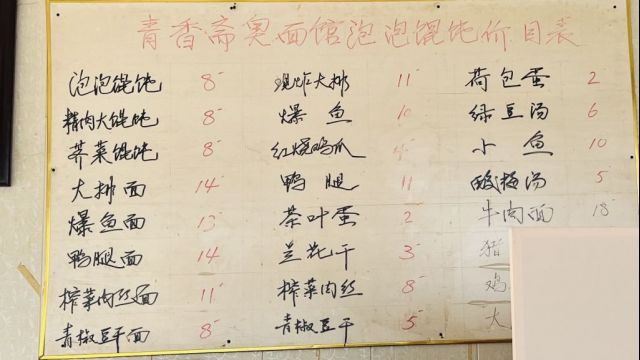 青香斋奥面馆泡泡馄饨价目表
泡泡馄饨 8 现炸大排 11 荷包蛋 2
精肉大馄饨 8 爆鱼 10 绿豆汤 6
荠菜馄饨 8 红烧鸡爪 小鱼 10
大排面 14 鸭腿 11 酸梅汤 5
爆鱼面 13 茶叶蛋 2 牛肉面 18
鸭腿面 14 兰花干 3 猪
榨菜肉丝面 11 榨菜肉丝 8 鸡
青椒豆干面 8 青椒豆干 5 大